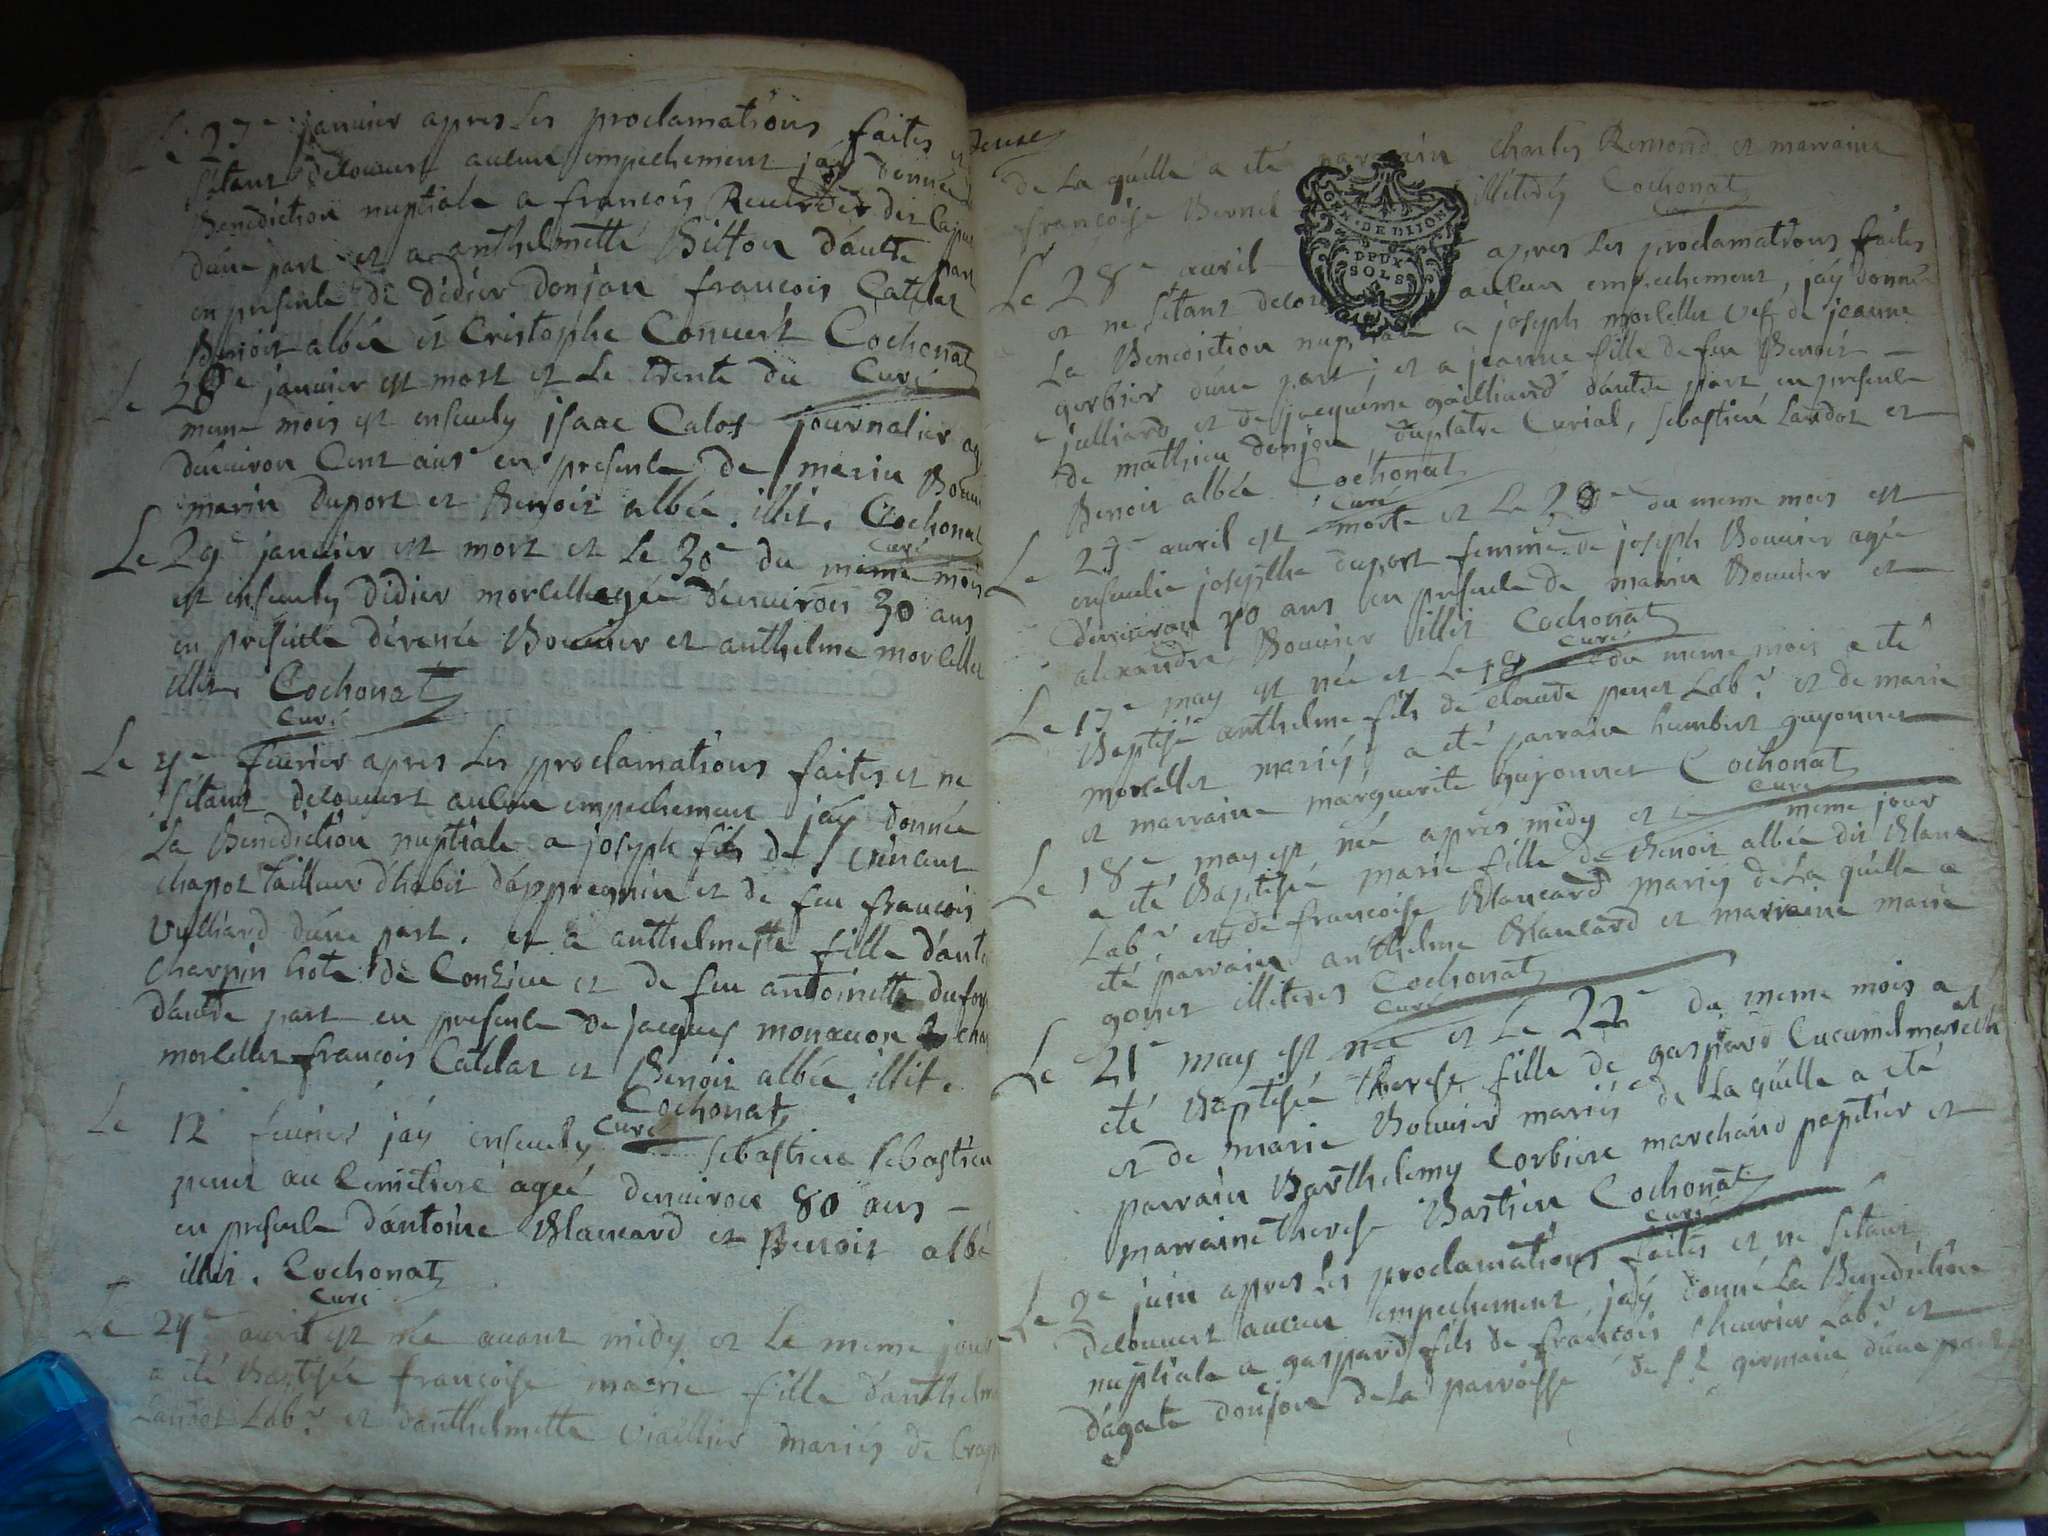 Le 27e janvier apres Les proclamations faites et
setant decouvert aucun empechement jay donnée
Benediction nuptiale a francois Reverdes des Capus
dúne part et a anthelmette Bitton dáutre part
en presence de didier donjon francois Catelat
Benoit albée et Cristophe Convert Cochonat
Curé
Le 28e janvier est mort et Le trente du
meme mois est ensevely jsaac Calos journalier agé
dénviron Cent ans en presence de marin Bouvi
marin Duport et Benoit albée. illit. Cochonat
Curé
Le 29e janvier est mort et Le 30e du meme mois
est ensevely didier morcellet agée dénviron 30 ans
en presence dérenée Bouvier et anthelme morcellet
illit. Cochonat
Curé
Le 4e fevrier apres Les proclamations faites et ne
setant decouvert aucun empechement jáy donnée
La Benediction nuptiale a joseph fils de vincent
chapot tailleur dhabit dáppregnin et de feu francois
vulliard dúne part. et a anthelmette fille dánt
charpin hote de Conzieu et de feu antoinette dufou
dáutre part en presence de jacques monavon
morcellet francois Catelat et Benoit albée. illit.
Cochonat
Curé
Le 12 fevrier jáy ensevely Sebastiene Sebastien
penet au Cemetiere agée denviron 80 ans –
en presence dántoine Blancard et Benoit albé
illit. Cochonat
Curé
Le 24e avril est née avant midy et Le meme jour
a été Baptisée francoise marie fille dánthelme
Landot Labr et dánthelmette viallier mariés de
deuxe
de La quélle a eté parrain charles Remond et marraine
francoise Bernel illiterés Cochonat
Curé
JOEN·DE DIJON
DEUX
SOLS
Le 28e avril apres Les proclamations faites
et ne setant decou aucun empechement, jáy donné
La Benediction nuptiale a joseph morcellet vef de jeanne
gerbier dúne part, et a jeanne fille de feu Benoit –
julliard et de jacquéme gailliard dáutre part en presence
de mathieu donjon, duplatre Curial, Sebastien Landot et
Benoit albée Cochonat
Curé
Le 27e avril est morte et Le 28e du meme mois est
ensevelie josephe duport femme de joseph Bouvier agée
dénviron 70 ans en presence de marin Bouvier et
alexandre Bouvier illit Cochonat
Curé
Le 17e may est née et Le 18 du meme mois a eté
Baptisé anthelme fils de claude penet Labr et de marie
morcellet mariés, a eté parrain humbert guyonnet
et marraine marguerite guyonnet Cochonat
Curé
Le 18e may est née aprés midy et Le meme jour
a eté Baptisée marie fille de Benoit albée dit Blanc
Labr et de francoise Blancard mariés de La quélle a
eté parrain anthelme Blancard et marraine marie
gonet illiteres Cochonat
Curé
Le 21e may est née et Le 22e du meme mois a
eté Baptisée therese fille de gaspard Cucumel marechal
et de marie Bouvier mariés de La quélle a eté
parrain Barthelemy Corbiere marchand papetier et
marraine therese Bastien Cochonat
Curé
Le 2e juin apres Les proclamations faites et ne setant
decouvert aucun empechement, jáy donné La Benediction
nuptiale a gaspard fils de francois Chevrier Labr et
dágate donjon de La parroisse de St germain dúne part